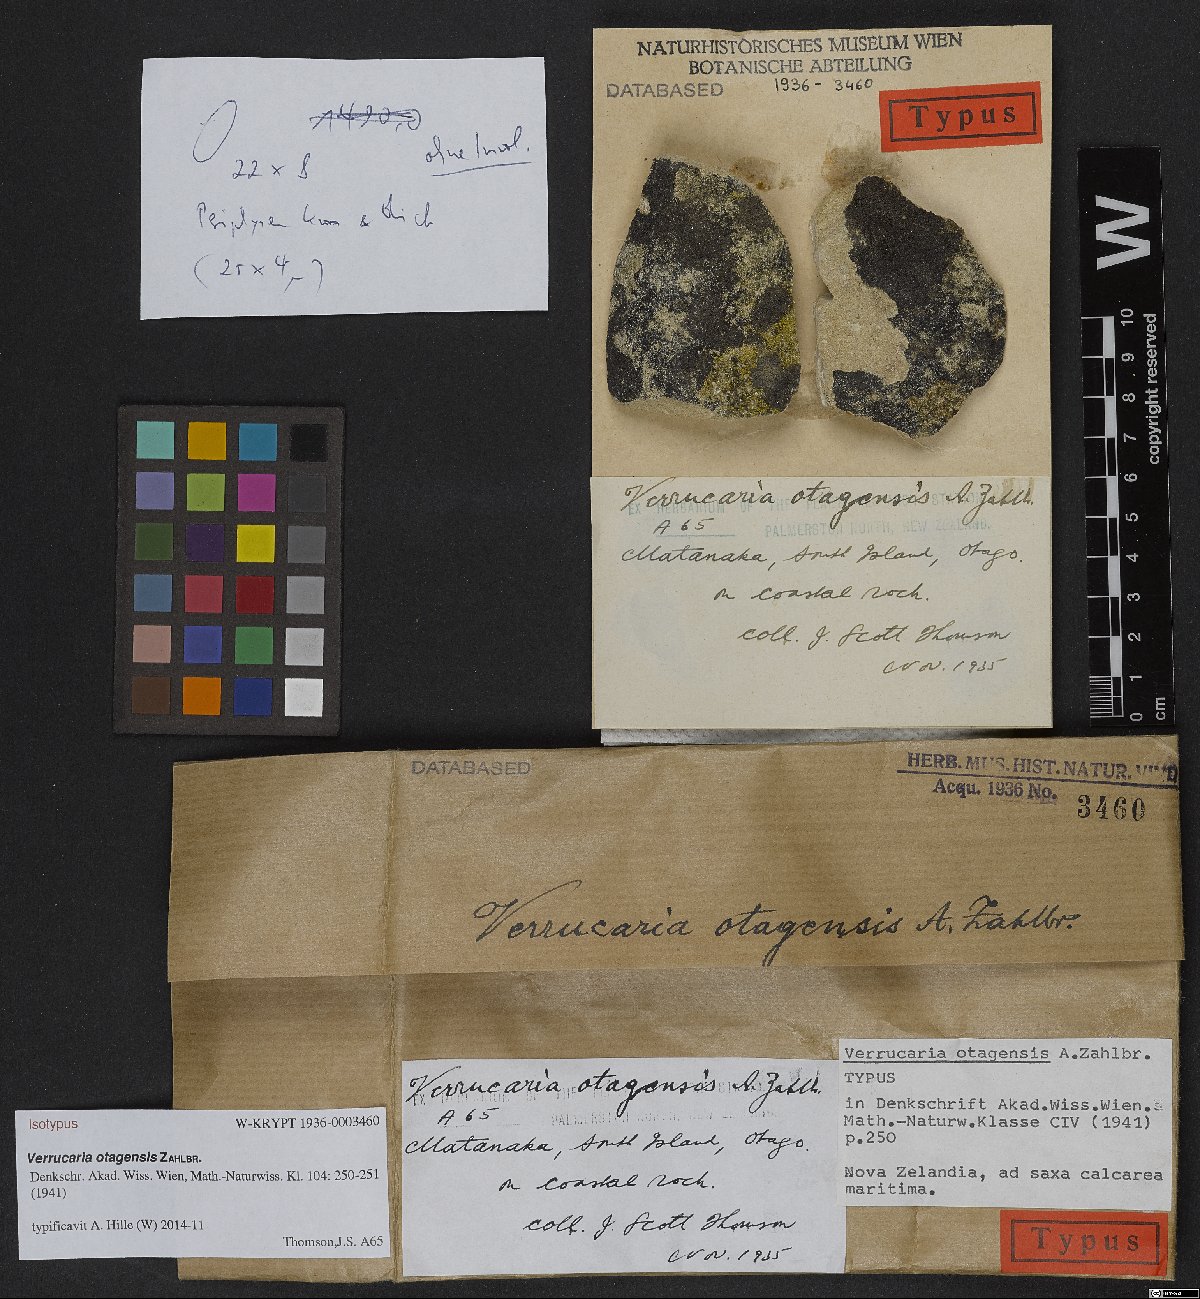 22 x 8
ohne Invol.
(25 x 4 µ)
NATURHISTORISCHES MUSEUM WIEN
BOTANISCHE ABTEILUNG
DATABASED
1936 - 3460
Typus
Verrucaria otagensis A. Zahlb.
EX HERBARIUM OF THE
A 65
PALMERSTON NORTH, NEW ZEALAND.
Matanaka, South Island, Otago.
on coastal rock.
coll. J. Scott Thomson
Nov. 1935
W
0 1 2 3 4 5 6 7 8 9 10
cm
copyright reserved
DATABASED
HERB. MUS. HIST. NATUR. VIND
Acqu. 1936 No.
3460
Verrucaria otagensis A. Zahlbr.
Verrucaria otagensis A. Zahlb.
A 65
Matanaka, South Island, Otago.
on coastal rock.
coll. J. Scott Thomson
Nov. 1935
Verrucaria otagensis A.Zahlbr.
TYPUS
in Denkschrift Akad.Wiss.Wien.
Math.-Naturw.Klasse CIV (1941)
p.250
Nova Zelandia, ad saxa calcarea
maritima.
Typus
Isotypus
W-KRYPT 1936-0003460
Verrucaria otagensis ZAHLBR.
Denkschr. Akad. Wiss. Wien, Math.-Naturwiss. Kl. 104: 250-251
(1941)
typificavit A. Hille (W) 2014-11
Thomson,J.S. A65